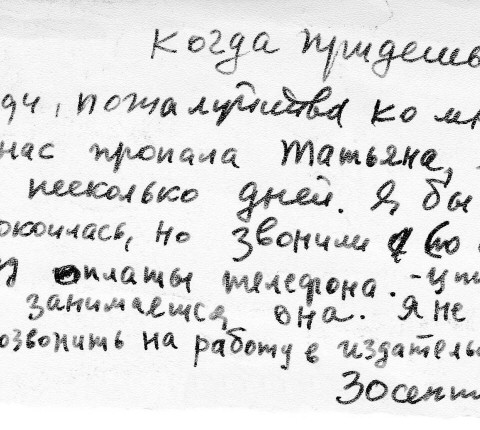 Когда придешь
пожалуйста ко мн
нас пропала Татьяна,
несколько дней. Я бы
окоилась, но звонили
оплаты телефона. -
занимается она. Я не
озвонить на работу в издатель
30 сент